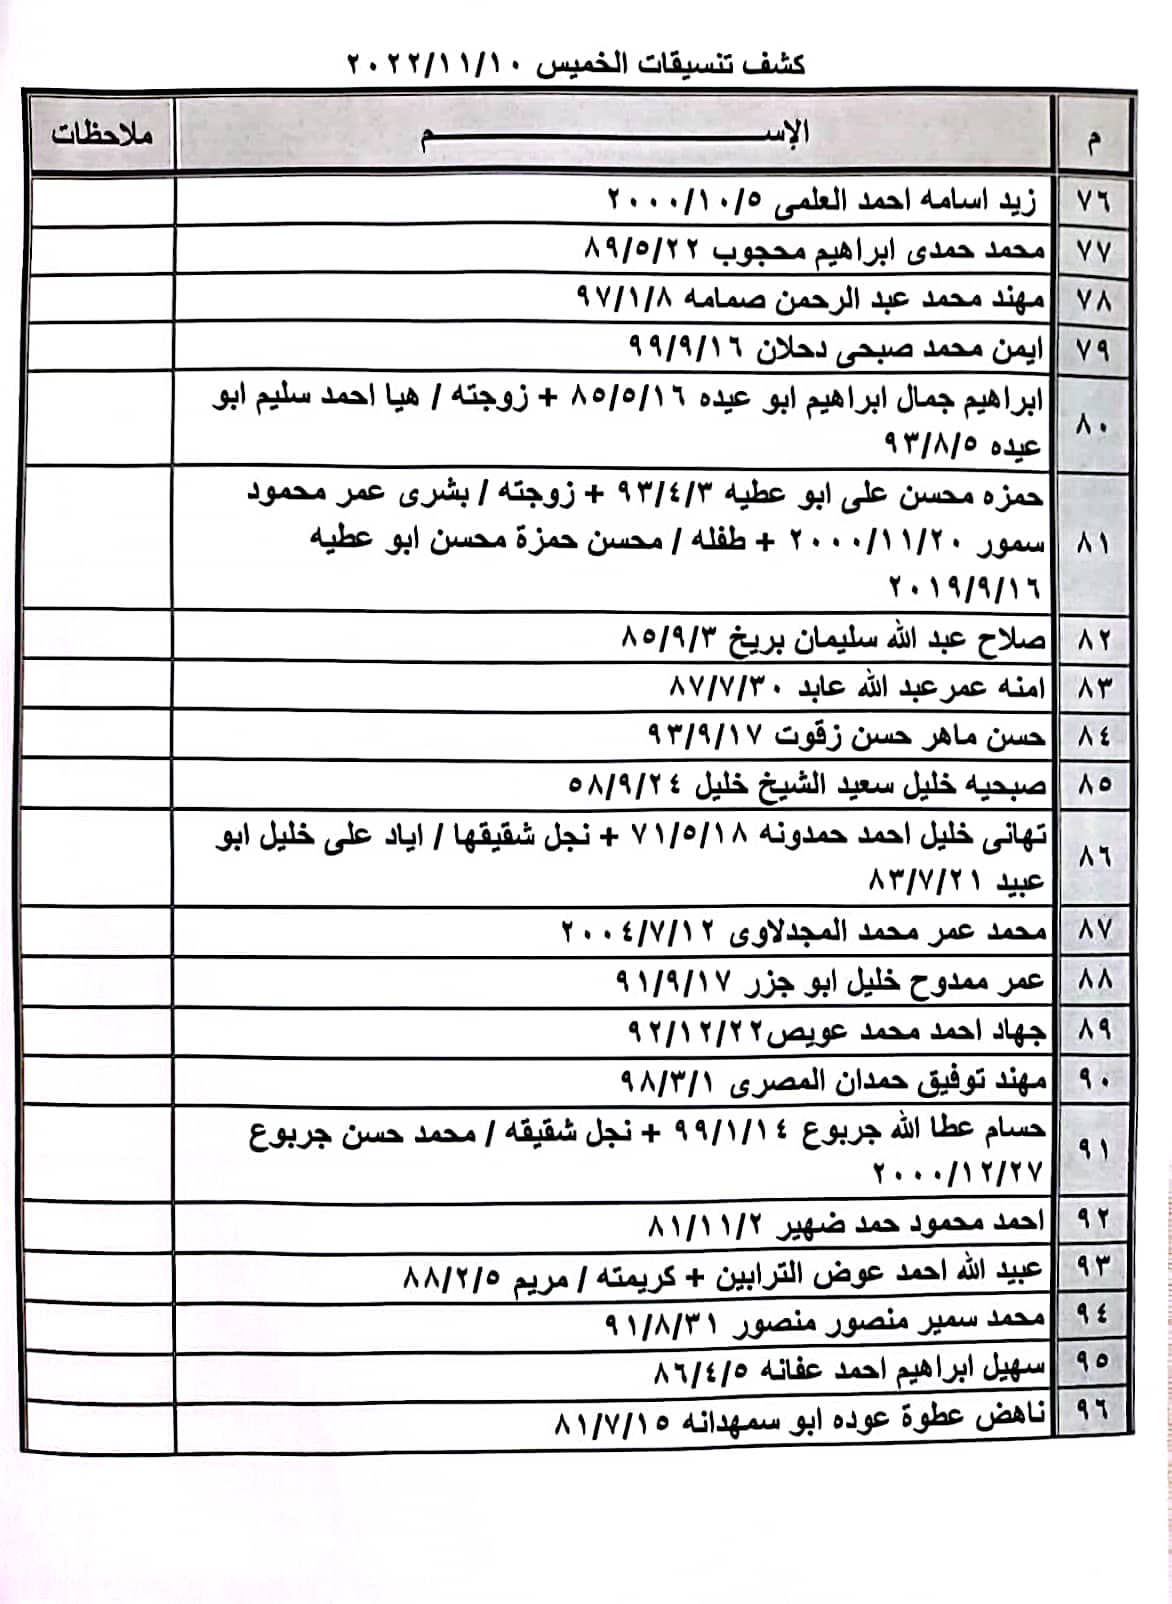 كشف تنسيقات الخميس ٢٠٢٢/١١/١٠
م الإســـــم ملاحظات
٧٦ زيد اسامه احمد العلمى ٢٠٠٠/١٠/٥
٧٧ محمد حمدى ابراهيم محجوب ٨٩/٥/٢٢
٧٨ مهند محمد عبد الرحمن صمامه ٩٧/١/٨
٧٩ ايمن محمد صبحى دحلان ٩٩/٩/١٦
٨٠ ابراهيم جمال ابراهيم ابو عيده ٨٥/٥/١٦ + زوجته / هيا احمد سليم ابو
عيده ٩٣/٨/٥
٨١ حمزه محسن على ابو عطيه ٩٣/٤/٣ + زوجته / بشرى عمر محمود
سمور ٢٠٠٠/١١/٢٠ + طفله / محسن حمزة محسن ابو عطيه
٢٠١٩/٩/١٦
٨٢ صلاح عبد الله سليمان بريخ ٨٥/٩/٣
٨٣ امنه عمرعبد الله عابد ٨٧/٧/٣٠
٨٤ حسن ماهر حسن زقوت ٩٣/٩/١٧
٨٥ صبحيه خليل سعيد الشيخ خليل ٥٨/٩/٢٤
٨٦ تهانى خليل احمد حمدونه ٧١/٥/١٨ + نجل شقيقها / اياد على خليل ابو
عبيد ٨٣/٧/٢١
٨٧ محمد عمر محمد المجدلاوى ٢٠٠٤/٧/١٢
٨٨ عمر ممدوح خليل ابو جزر ٩١/٩/١٧
٨٩ جهاد احمد محمد عويص٩٢/١٢/٢٢
٩٠ مهند توفيق حمدان المصرى ٩٨/٣/١
٩١ حسام عطا الله جربوع ٩٩/١/١٤ + نجل شقيقه / محمد حسن جربوع
٢٠٠٠/١٢/٢٧
٩٢ احمد محمود حمد ضهير ٨١/١١/٢
٩٣ عبيد الله احمد عوض الترابين + كريمته / مريم ٨٨/٢/٥
٩٤ محمد سمير منصور منصور ٩١/٨/٣١
٩٥ سهيل ابراهيم احمد عفانه ٨٦/٤/٥
٩٦ ناهض عطوة عوده ابو سمهدانه ٨١/٧/١٥